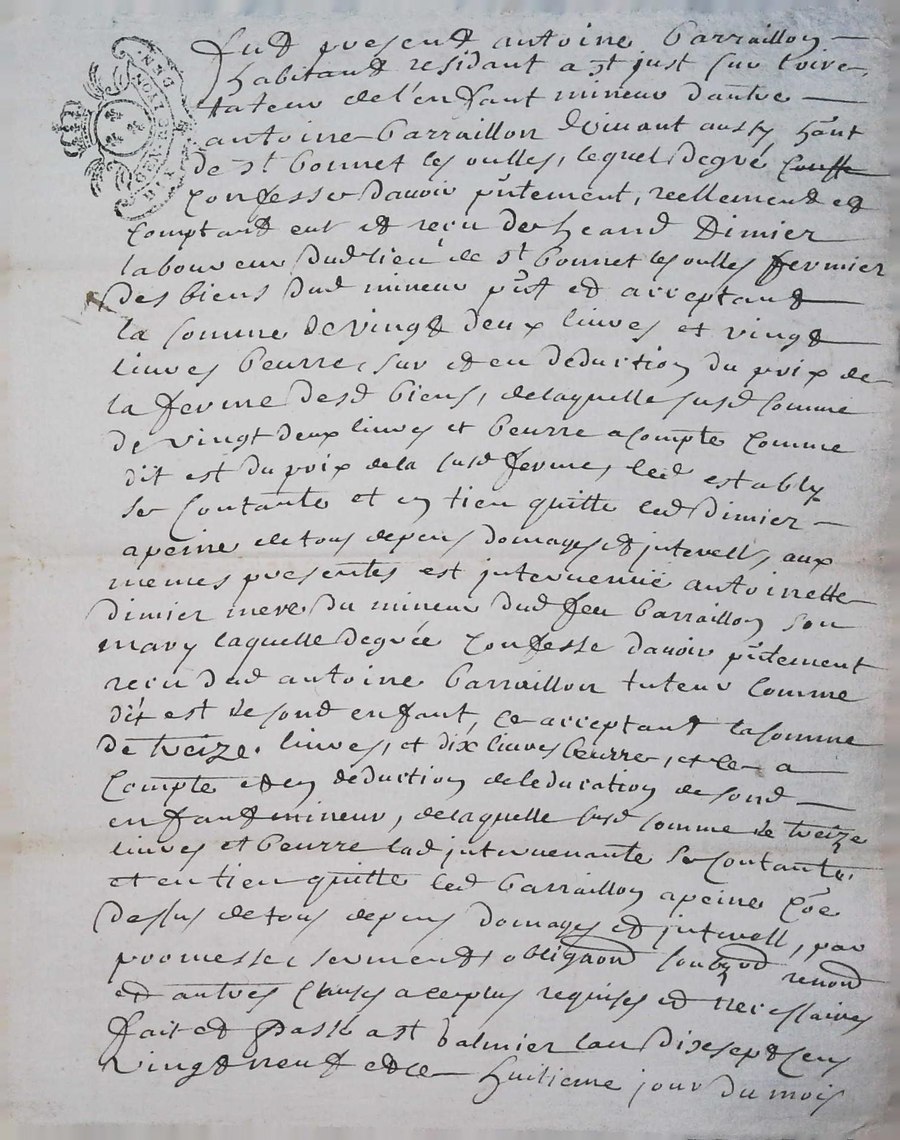 GEN. LYON
Fut present antoine Barraillon
habitant residant a st just sur loire
tuteur de l'enfant mineur d'autre
antoine barraillon vivant aussy hant
de st bonnet les oulles, lequel de gré
confesse d'avoir pntement, reellement et
comptant eut et reçu de Jeand Dimier
laboureur dud lieu de st bonnet les oulles fermier
des biens dud mineur pnt et acceptant
la somme de vingt deux livres et vingt
livres beurre, sur et en deduction du prix de
la ferme desd biens, de laquelle susd somme
de vingt deux livres et beurre a compte comme
dit est du prix de la susd ferme, led estably
se contante et en tien quitte led Dimier
a peine de tous depens domages et interests, aux
memes presentes est intervenue antoinette
dimier mere du mineur dud feu barraillon son
mary laquelle de grée confesse d'avoir pntement
reçu dud antoine barraillon tuteur comme
dit est de sond enfant, ce acceptant la somme
de treize livres, et dix livres beurre, et ce a
compte et en deduction de l'education de sond
enfant mineur, de laquelle susd somme de treize
livres et beurre lad intervenante se contante
et en tien quitte led barraillon a peine coe
dessus de tous depens domages et interest, par
promesse, serment, obligaond renond
et autres clauses a ce plus requises et necessaires
fait et passé a st balmier l'an dix sept cens
vingt neuf et le huitieme jour du mois